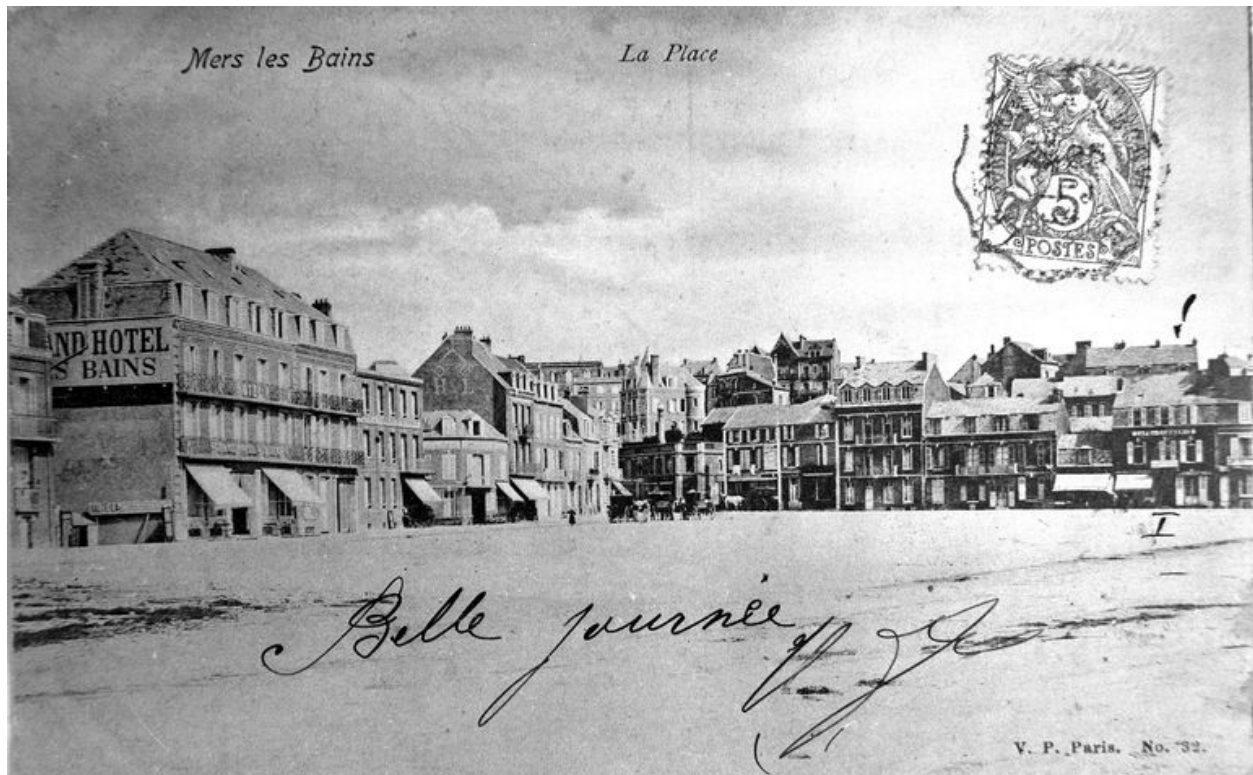 Mers les Bains La Place
5c
POSTES
AND HOTEL
S BAINS
I
Belle journée
V. P. Paris. No. 32.